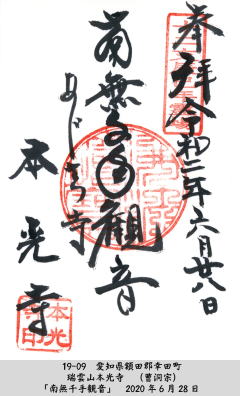 奉拝 令和二年六月廿八日
南無千手観音
あじさい寺
本光寺
本光寺印
19-09 愛知県額田郡幸田町
瑞雲山本光寺 (曹洞宗)
「南無千手観音」 2020年6月28日